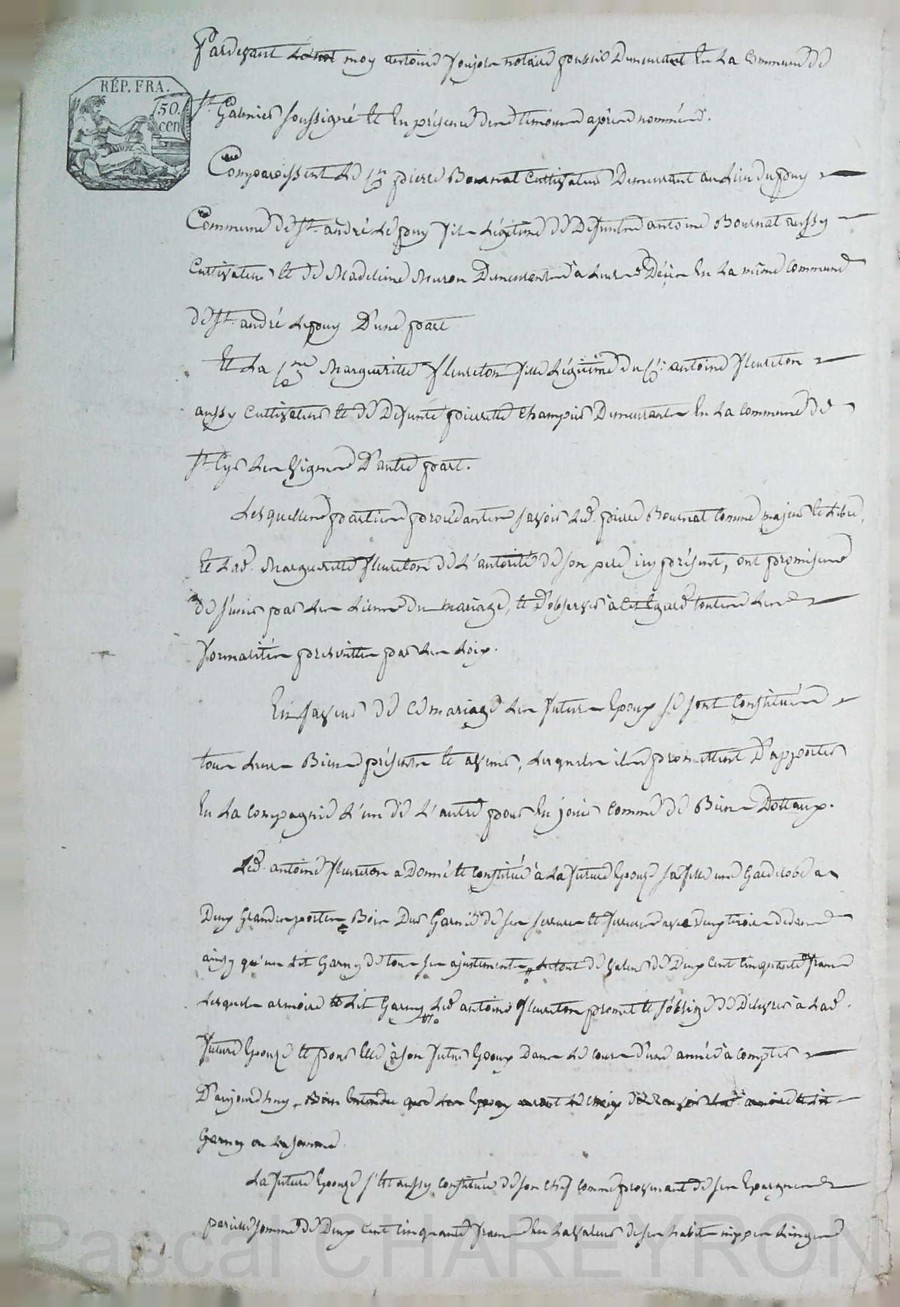 RÉP. FRA.
50.
cen
Pardevant moy antoine notaire public Demeurant En La Commune de
St. Galmier soussigné et En présence des témoins après nommés.
Comparoissent Le Sr. pierre Bournat Cultivateur Demeurant au Lieu du puy
Commune de St. andré Le puy fils Légitime de Défunts antoine Bournat aussy
Cultivateur et de Madeleine Demeurants à Leurs Décès En La même Commune
de St. andré Le puy D'une part
Et La Marguerite fleureton fille Légitime du Sr. antoine fleureton
aussy Cultivateur et de Défunte pierrette Demeurant En La Commune de
St. Cyr Les Vignes D'autre part.
Lesquelles parties procédantes savoir Led. pierre Bournat Comme majeur et Libre,
et Lad. Marguerite fleureton de L'autorité de son père icy présent, ont promis
de s'unir par Les Liens du mariage, et D'observer à cet égard toutes Les
formalités prescrittes par Les Loix.
En faveur de ce mariage Les futurs Epoux se sont Constitués
tous Leurs Biens présents et avenir, Lesquels ils promettent D'apporter
En La Compagnie L'un de L'autre pour En jouir Comme de Biens Dottaux.
Led. antoine fleureton a Donné et Constitué à La future Epouse sa fille une Garderobe à
Deux Grandes portes Bois Dur Garnie de ses serrures et ferrures avec Deux tiroirs dedans
ainsy qu'un Lit Garny de tous ses ajustements, Le tout de Valeur de Deux Cent Cinquante francs
Lesquels armoire et Lit Garny Led. antoine fleureton promet et s'oblige de Délivrer à Lad.
future Epouse et pour Elle à son futur Epoux Dans Le Cours d'une année à Compter
D'aujourd'huy, Bien Entendu que Les Epoux auront Le Choix de
Garny ou La somme
La future Epouse s'est aussy Constituée de son Chef Comme provenant de ses Epargnes
pareille somme de Deux Cent Cinquante francs En La Valeur de ses habits nippes Linges
Pascal CHAREYRON